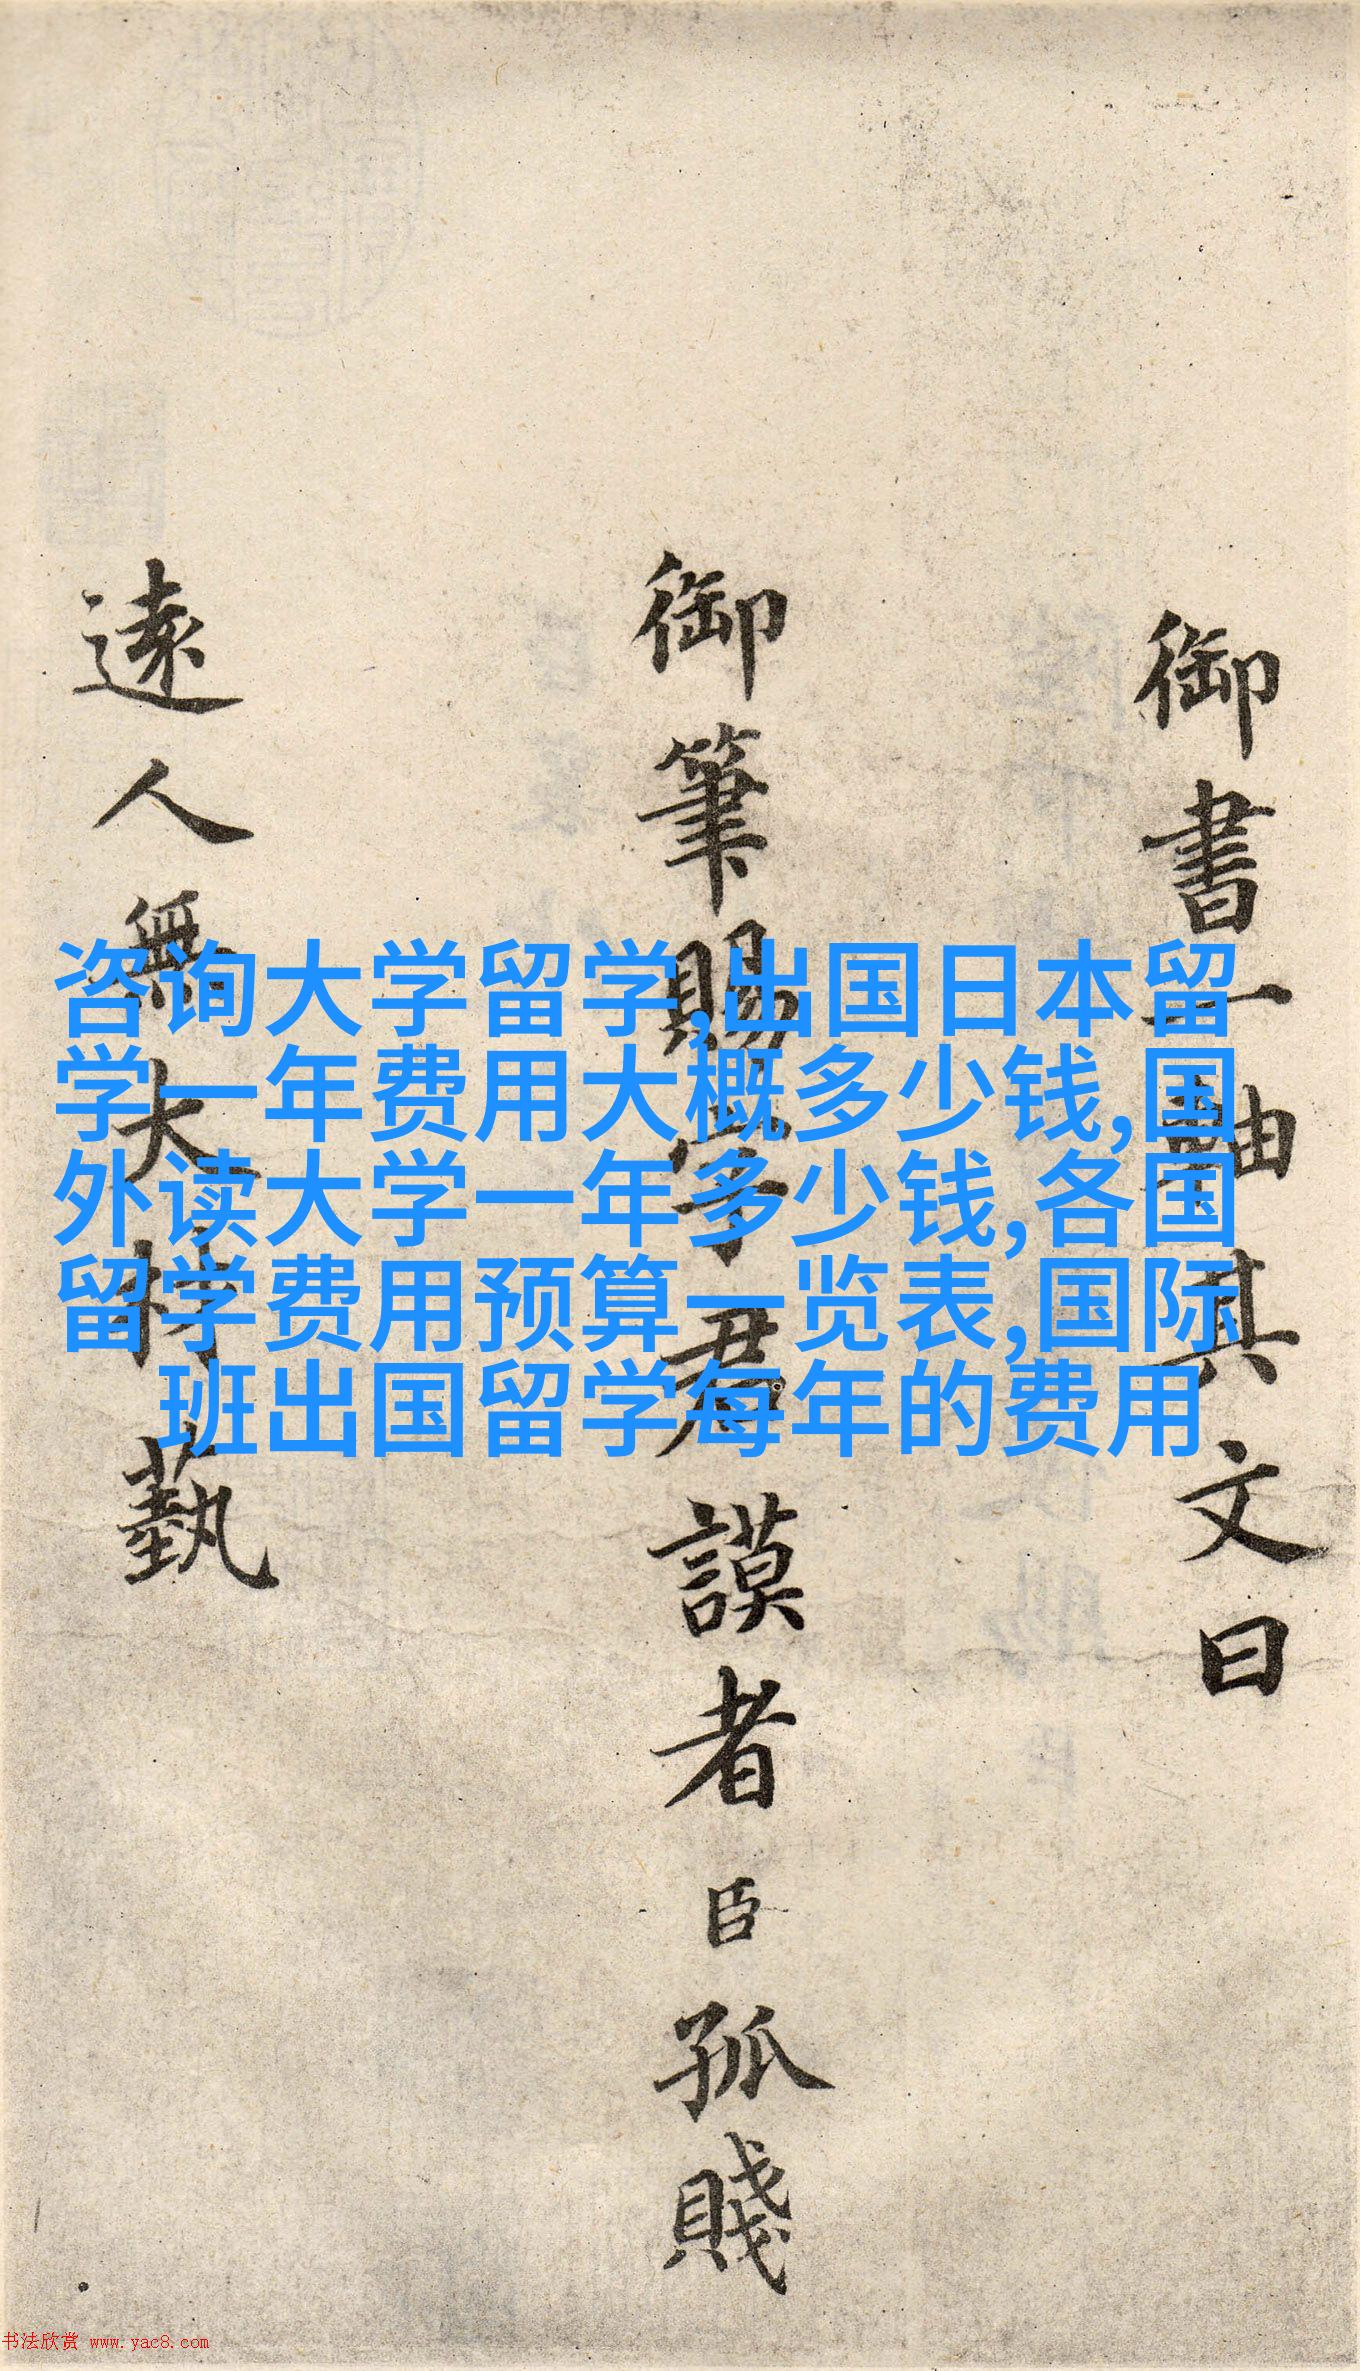 御書一軸其文曰
御筆賜字君謨者臣孤賤
遠人無大材藝
咨询大学留学,出国日本留
学一年费用大概多少钱,国
外读大学一年多少钱,各国
留学费用预算一览表,国际
班出国留学每年的费用
书法欣赏 www.yac8.com